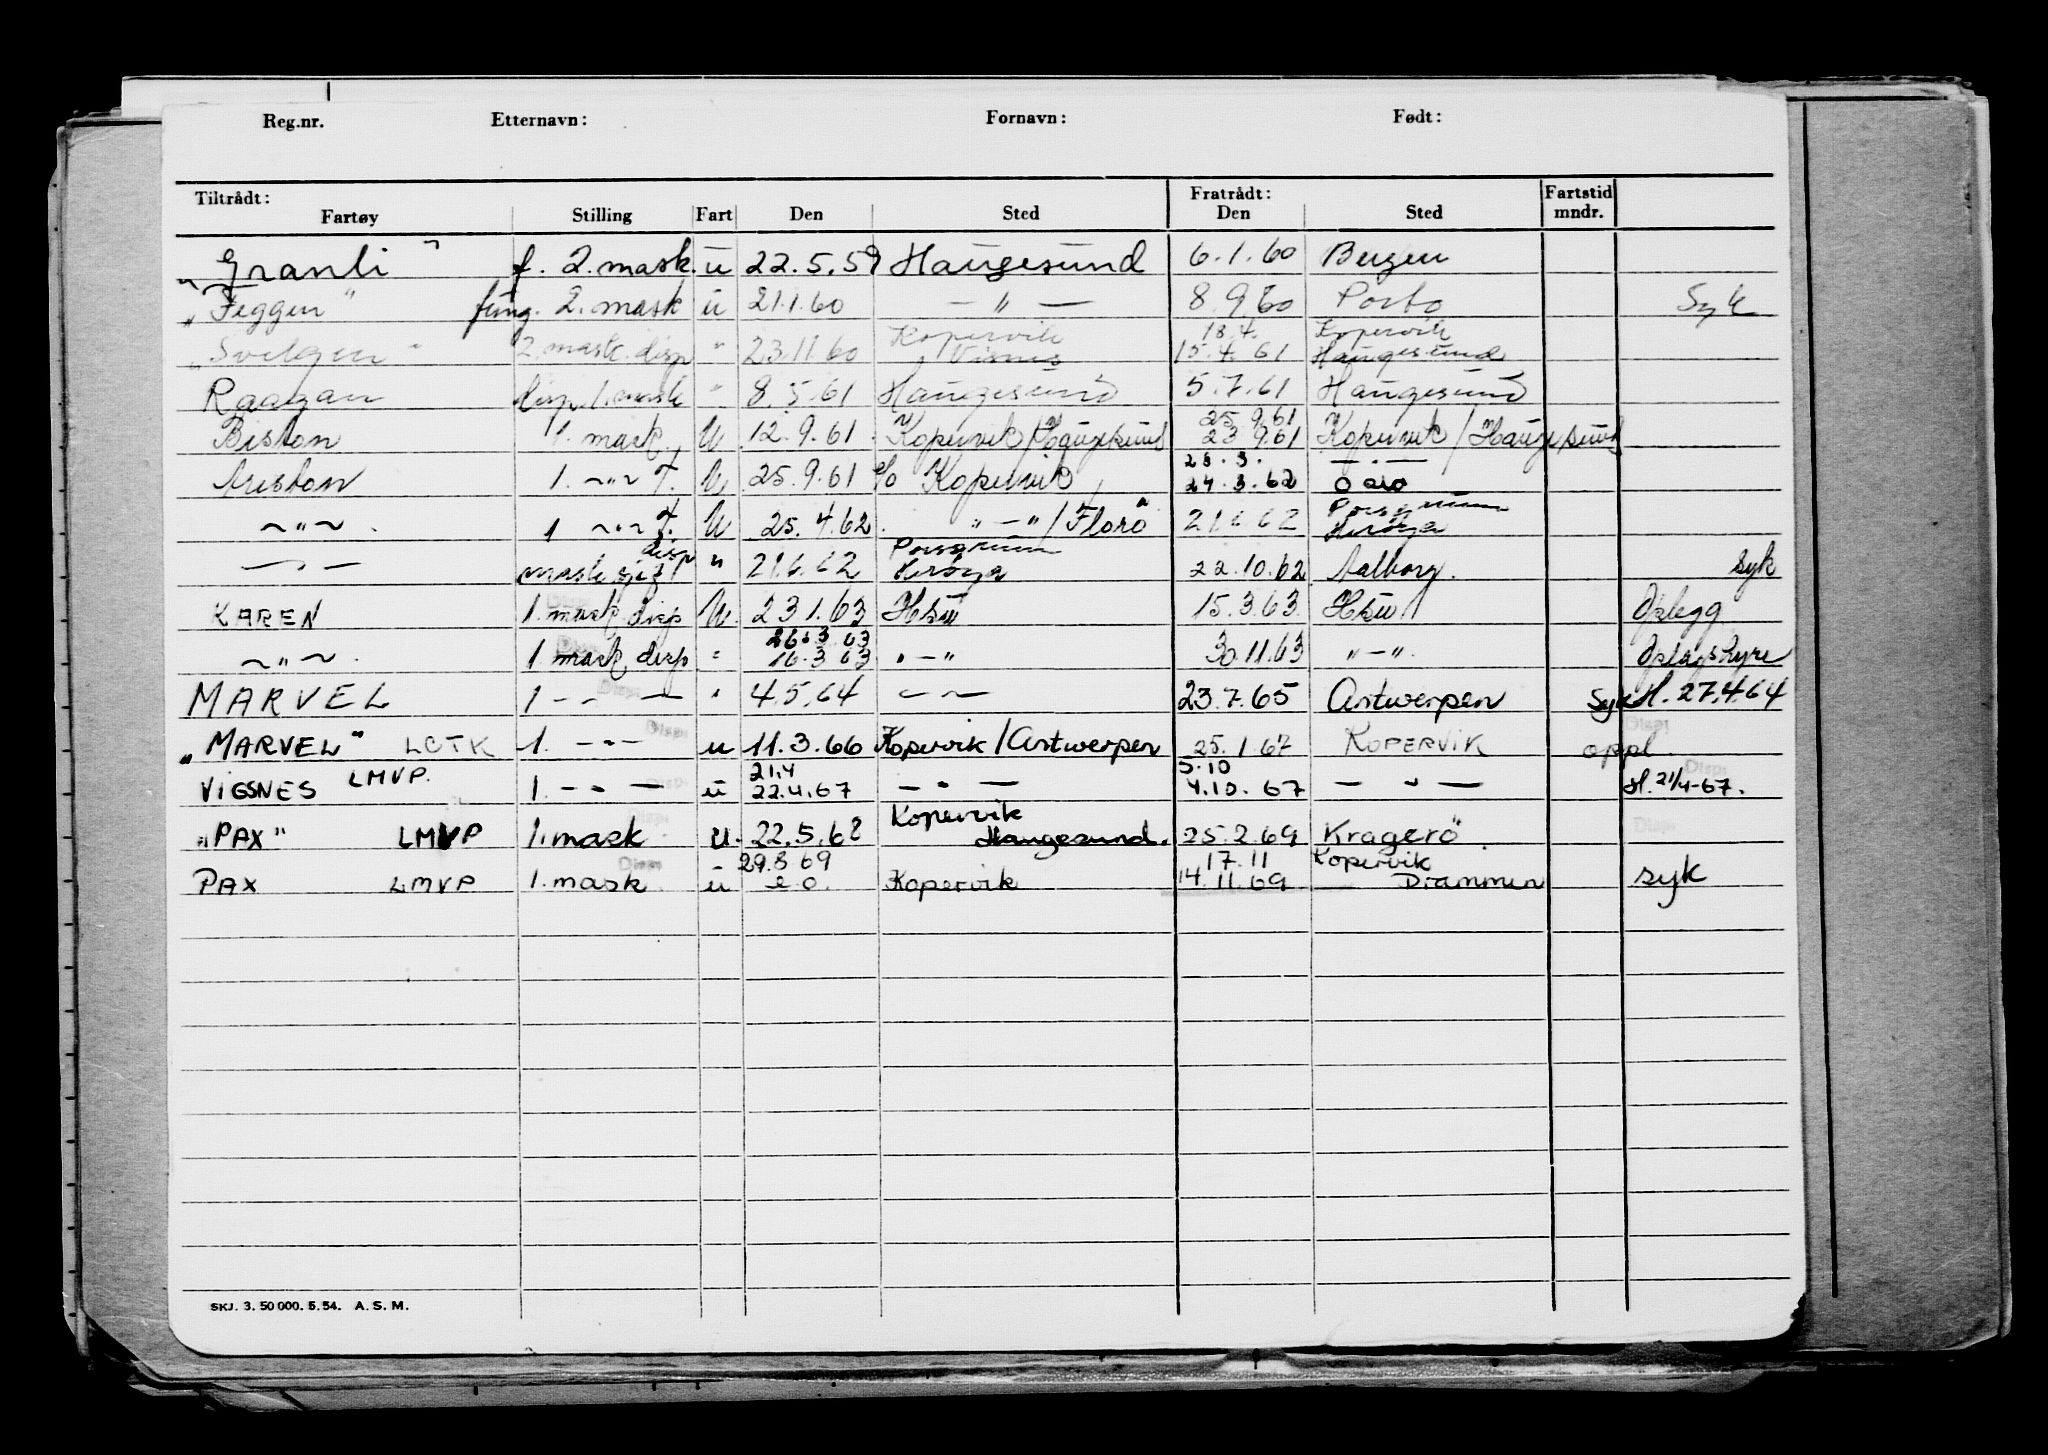 Reg.nr. Etternavn: Fornavn: Født:
Tiltrådt: Fratrådt: Fartstid
Fartøy Stilling Fart Den Sted Den Sted mndr.
"Granli" f. 2. mask. u 22.5.59 Haugesund 6.1.60 Bergen
"Feggen" fung. 2. mask u 21.1.60 — " — 8.9.60 Porto Syk
Kopervik 18.4. Kopervik
"Svelgen" 2. mask. disp " 23.11.60 Visnes 15.4.61 Haugesund
Raagan disp. 1. mask " 8.5.61 Haugesund 5.7.61 Haugesund
25.9.61
Biston 1. mask. U 12.9.61. Kopervik/Haugesund 23.9.61 Kopervik/Haugesund
— . —
Ariston 1. ~"~ f. U 25.9.61 Kopervik 24.3.62 Oslo
Porsgrunn
~"~. 1 ~"~ f. U 25.4.62 " — "/Florø 21.6.62 Herøya
disp Porsgrunn
— " — maskesjef " 21.6.62 Herøya 22.10.62 Aalborg. syk
KAREN 1. mask disp U. 23 1.63 Hsu 15.3.63. Hsu Oplegg
26.3.63
~"~. 1 mask disp " 16.3 63 " — " 30.11.63 " — ". Oplagshyre
MARVEL 1 - - — " 4.5.64 — ~ 23.7.65 Antwerpen Syk H. 27.4.64
"MARVEL" LCTK 1. - " - u 11.3.66 Kopervik/Antwerpen 25.1.67 KOPERVIK oppl.
21.4 5.10
VIGSNES LMVP. 1. - " — u 22.4.67 — " — 4.10.67 — " — H. 21/4-67.
Kopervik
"PAX" LMVP 1. mask u. 22.5.68 Haugesund. 25.2.69 Kragerö
29.8 69 17.11 Kopervik
PAX LMVP 1. mask u e o. Kopervik 14.11.69 Drammen syk
Disp
SKJ. 3. 50 000. 5. 54. A. S. M.